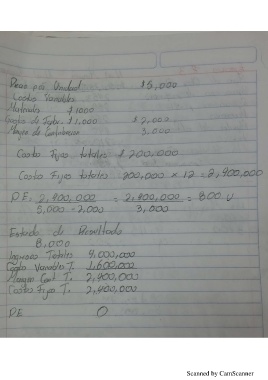 Precio por Unidad $5,000
Costos Variables
Materiales $1000
Gastos de $1,000 $2,000
Margen de Contribución 3,000
Costos Fijos totales $200,000
Costos Fijos totales 200,000 x 12 = 2,400,000
P.E. 2,400,000 = 2,400,000 = 800 U
5,000 - 2,000 3,000
Estado de Resultado
Ingresos Totales 4,000,000
Costos Variables T. 1,600,000
Margen Cont T. 2,400,000
Costos Fijos T. 2,400,000
P.E 0
Scanned by CamScanner